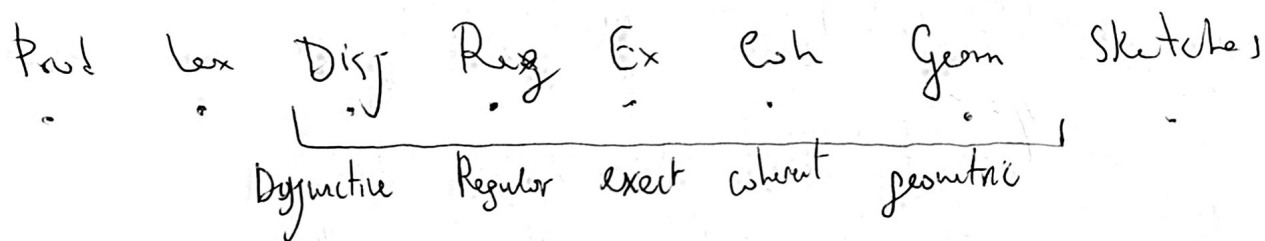 Prod Lex Disj Reg Ex Coh Geom Sketches
Dysjunctive Regular exact coherent geometric